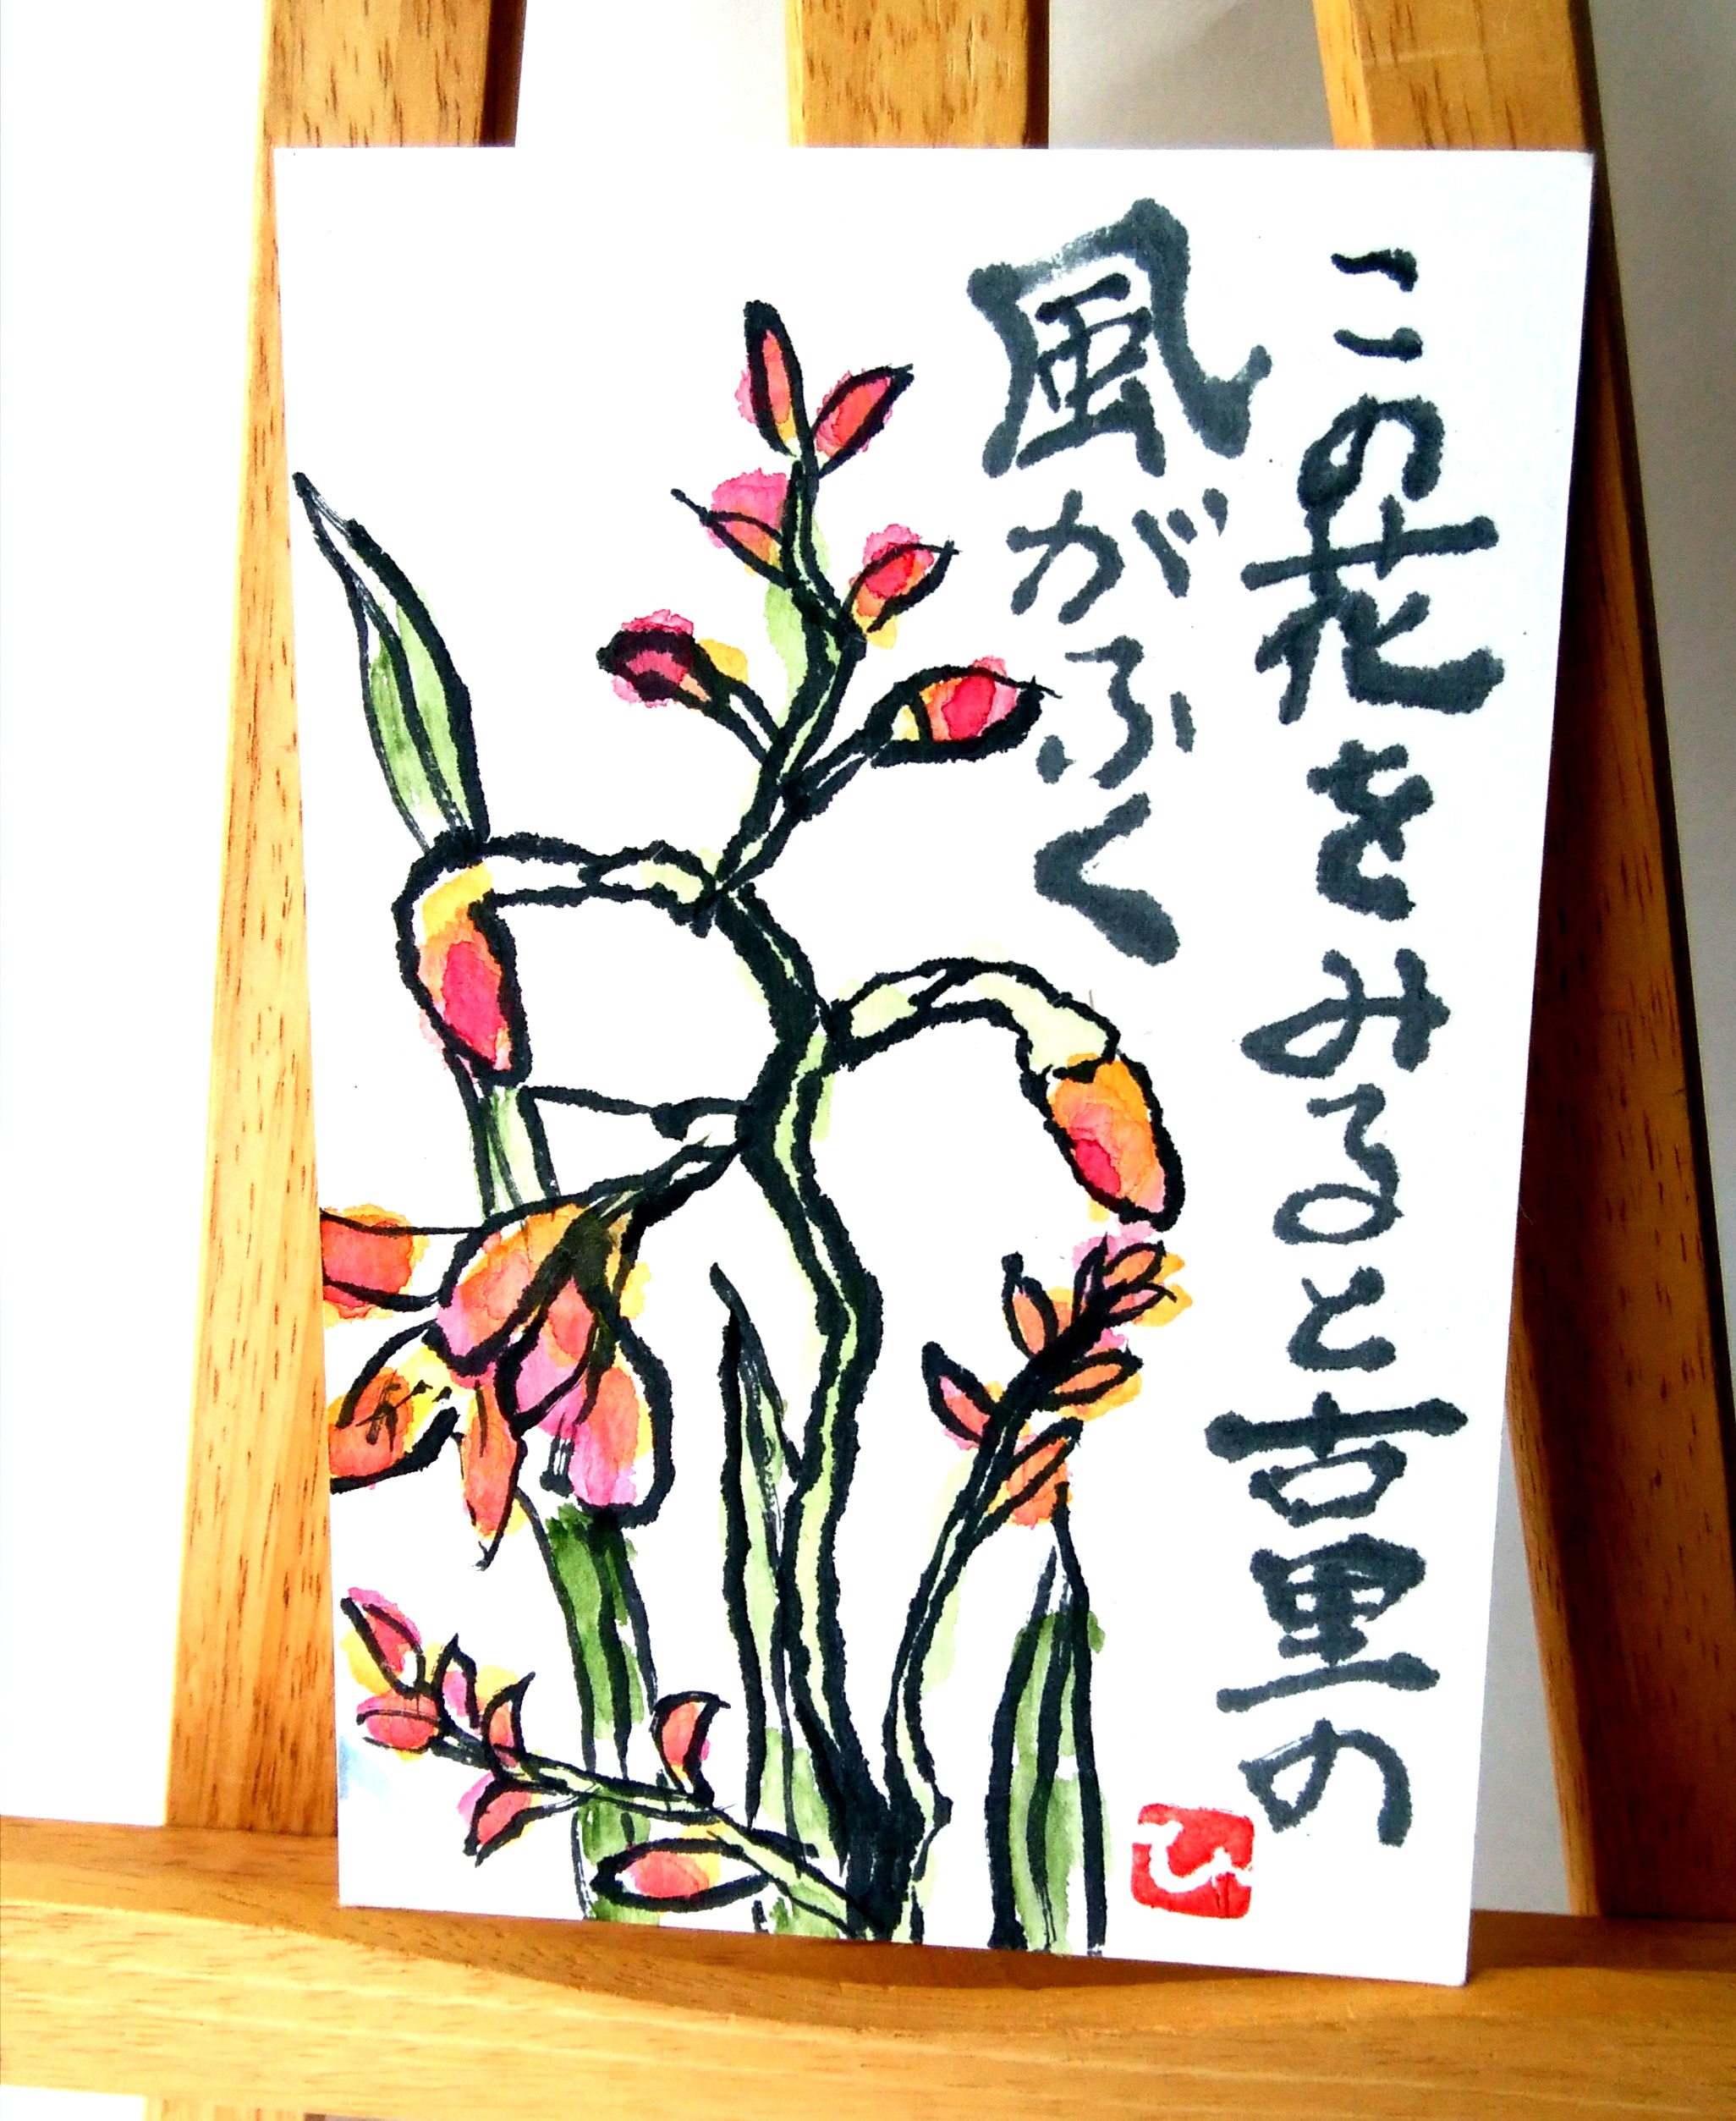 この花をみると古里の
風がふく
ひ